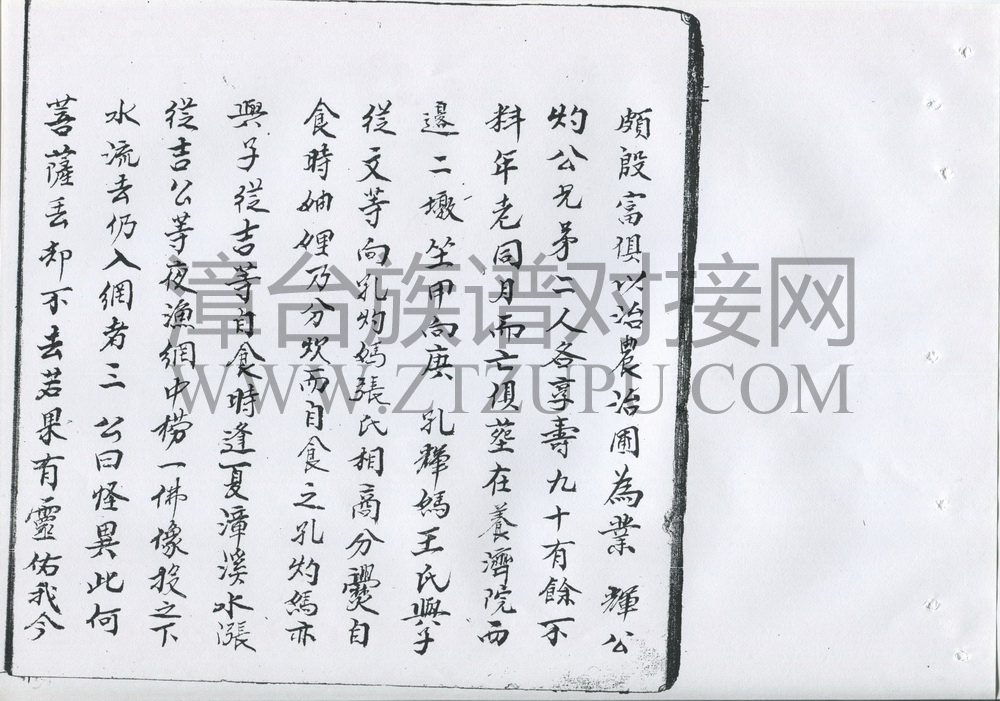 頗殷富俱以治農治圃為業 輝公
灼公兄弟二人各享壽九十有餘不
料年老同月而亡俱塟在養濟院西
邊二墩坐甲向庚 孔輝媽王氏與子
從文等向孔灼媽張氏相商分爨自
食時妯娌乃分炊而自食之孔灼媽亦
與子從吉等自食時逢夏漳溪水漲
從吉公等夜漁網中撈一佛像投之下
水流去仍入網者三 公曰怪異此何
菩薩丟却不去若果有靈佑我今
漳台族谱对接网
WWW.ZTZUPU.COM